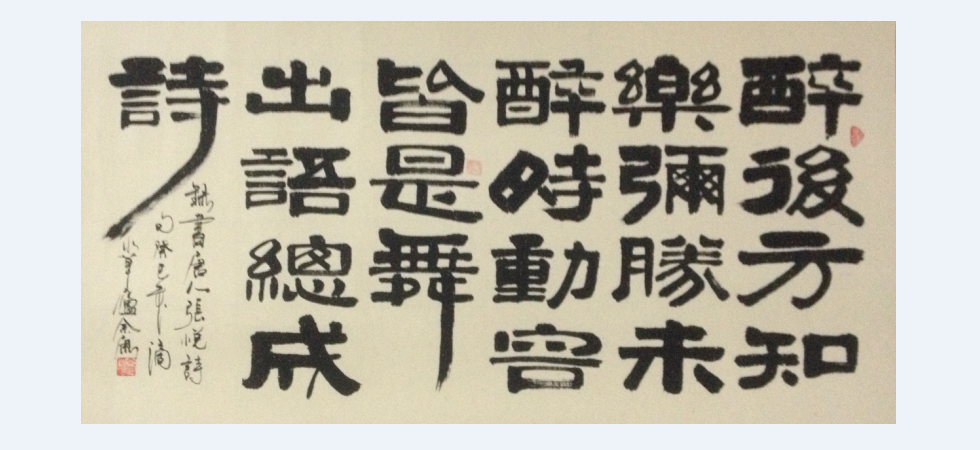 醉後方知
樂彌勝未
醉時動容
皆是舞
出語總成
詩
隸書唐人張悅詩
句癸巳年